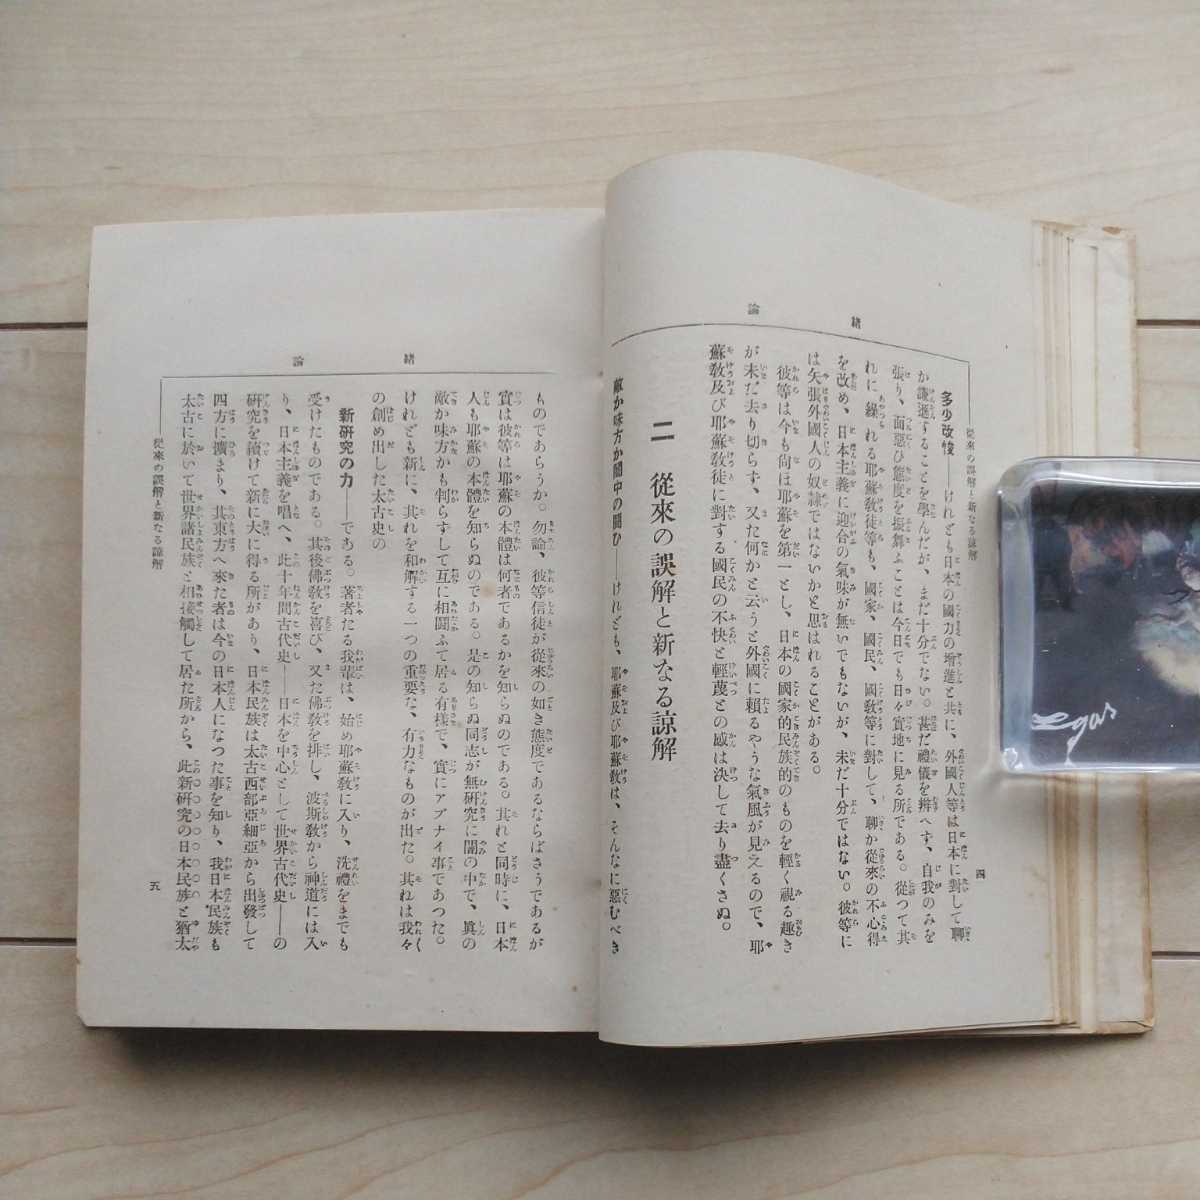 緒論
從來の誤解と新なる諒解
四
多少改悛――けれども日本の國力の增進と共に、外國人等は日本に對して聊
か謙遜することを學んだが、まだ十分でない。甚だ禮儀を辨へず、自我のみを
張り、面惡い態度を振舞ふことは今日でも日々實地に見る所である。從つて其
れに繰れる耶蘇敎徒等も、國家、國民、國敎等に對して、聊か從來の不心得
を改め、日本主義に迎合の氣味が無いでもないが、未だ十分ではない。彼等に
は矢張外國人の奴隷ではないかと思はれることがある。
彼等は今も尙ほ耶蘇を第一とし、日本の國家的民族的のものを輕く視る趣き
が未だ去り切らず、又た何かと云うと外國に賴るやうな氣風が見えるので、耶
蘇敎及び耶蘇敎徒に對する國民の不快と輕蔑との感は決して去り盡くさぬ。
二 從來の誤解と新なる諒解
敵か味方か闇中の鬪ひ――けれども、耶蘇及び耶蘇敎は、そんなに惡むべき
緒論
ものであらうか。勿論、彼等信徒が從來の如き態度であるならばさうであるが
實は彼等は耶蘇の本體は何者であるかを知らぬのである。其れと同時に、日本
人も耶蘇の本體を知らぬのである。是の知らぬ同志が無硏究に闇の中で、眞の
敵か味方かも判らずして互に相鬪ふて居る有樣で、實にアブナイ事であつた。
けれども新に、其れを和解する一つの重要な、有力なものが出た。其れは我々
の創め出した太古史の
新硏究の力――である。著者たる我輩は、始め耶蘇敎に入り、洗禮をまでも
受けたものである。其後佛敎を喜び、又た佛敎を排し、波斯敎から神道には入
り、日本主義を唱へ、此十年間古代史――日本を中心として世界古代史――の
硏究を續けて新に大に得る所があり、日本民族は太古西部亞細亞から出發して
四方に擴まり、其東方へ來た者は今の日本人になつた事を知り、我日本民族も
太古に於いて世界諸民族と相接觸して居た所から、此新硏究の日本民族と猶太
從來の誤解と新なる諒解
五
egas